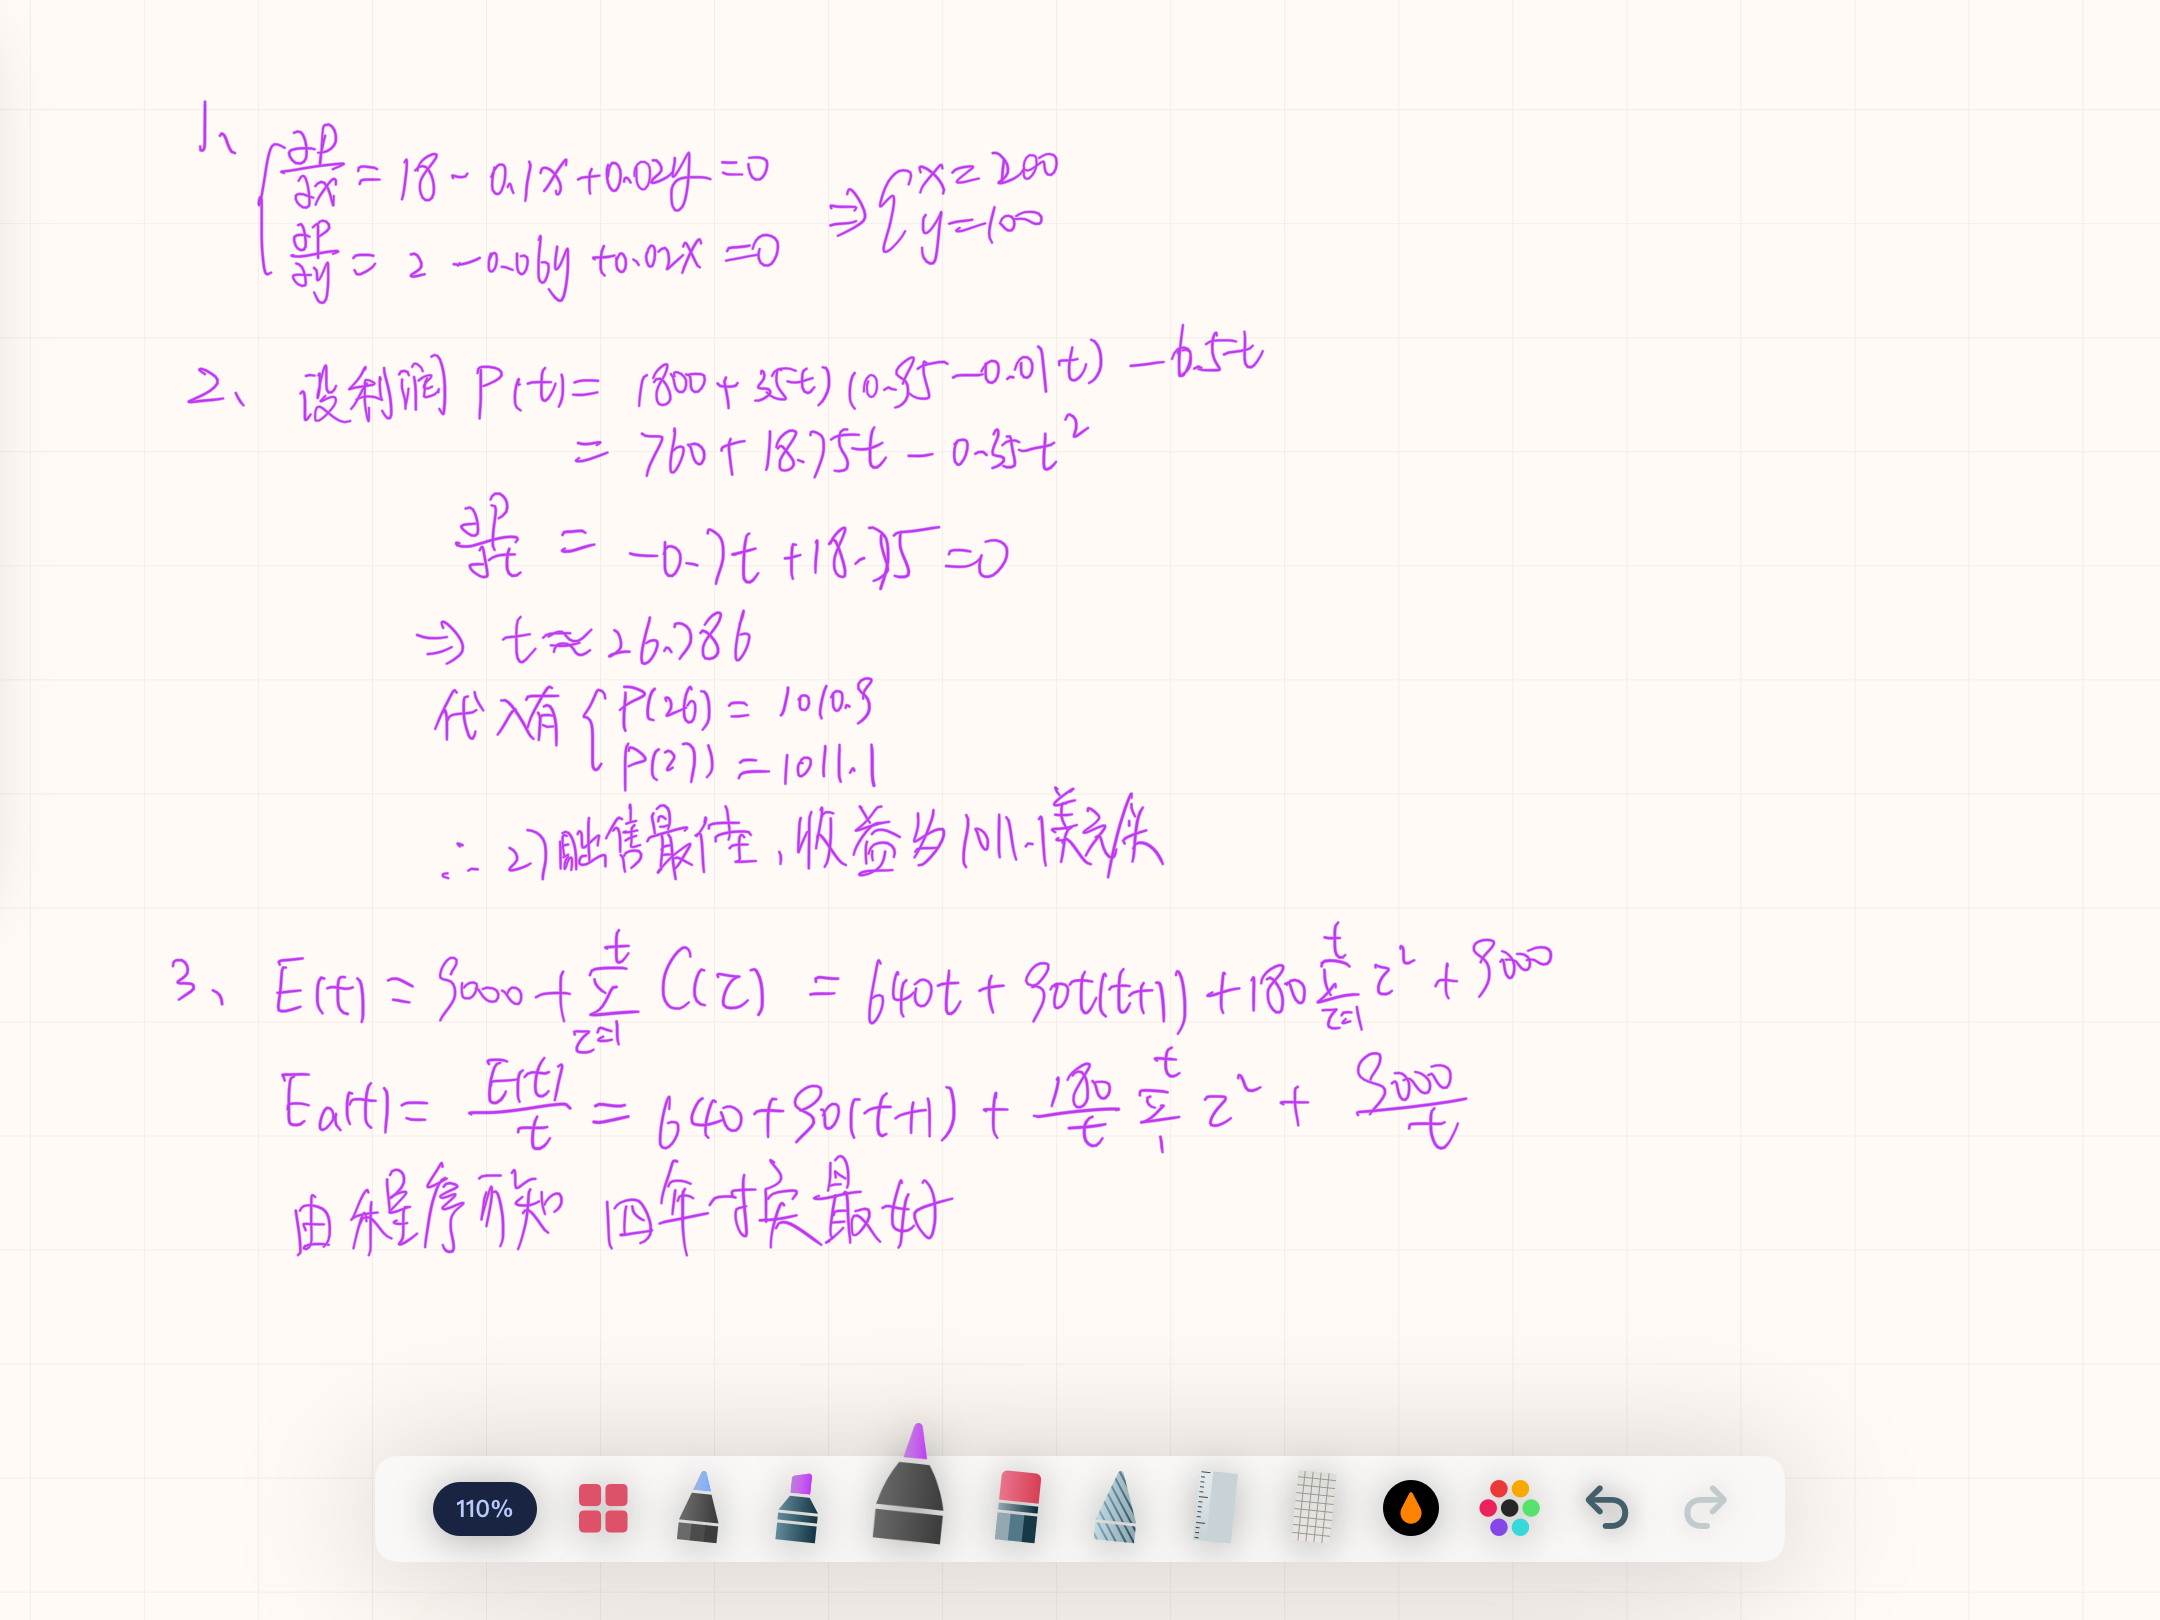 1、
∂P/∂x = 18 - 0.1x + 0.02y = 0
∂P/∂y = 2 - 0.06y + 0.02x = 0
⇒ { x = 200
y = 100
2、 设利润 P(t) = (800 + 35t)(0.95 - 0.01t) - 6.5t
= 760 + 18.75t - 0.35t²
∂P/∂t = -0.7t + 18.75 = 0
⇒ t ≈ 26.786
代入有 { P(26) = 1010.9
P(27) = 1011.1
∴ 27 售最佳, 收益为 1011.1美元
3、 E(t) = 9000 + ∑_{τ=1}^{t} C(τ) = 640t + 90t(t+1) + 180 ∑_{τ=1}^{t} τ² + 9000
Ea(t) = E(t)/t = 640 + 90(t+1) + 180/t ∑_{1}^{t} τ² + 9000/t
由程序可知 四年换最好
110%